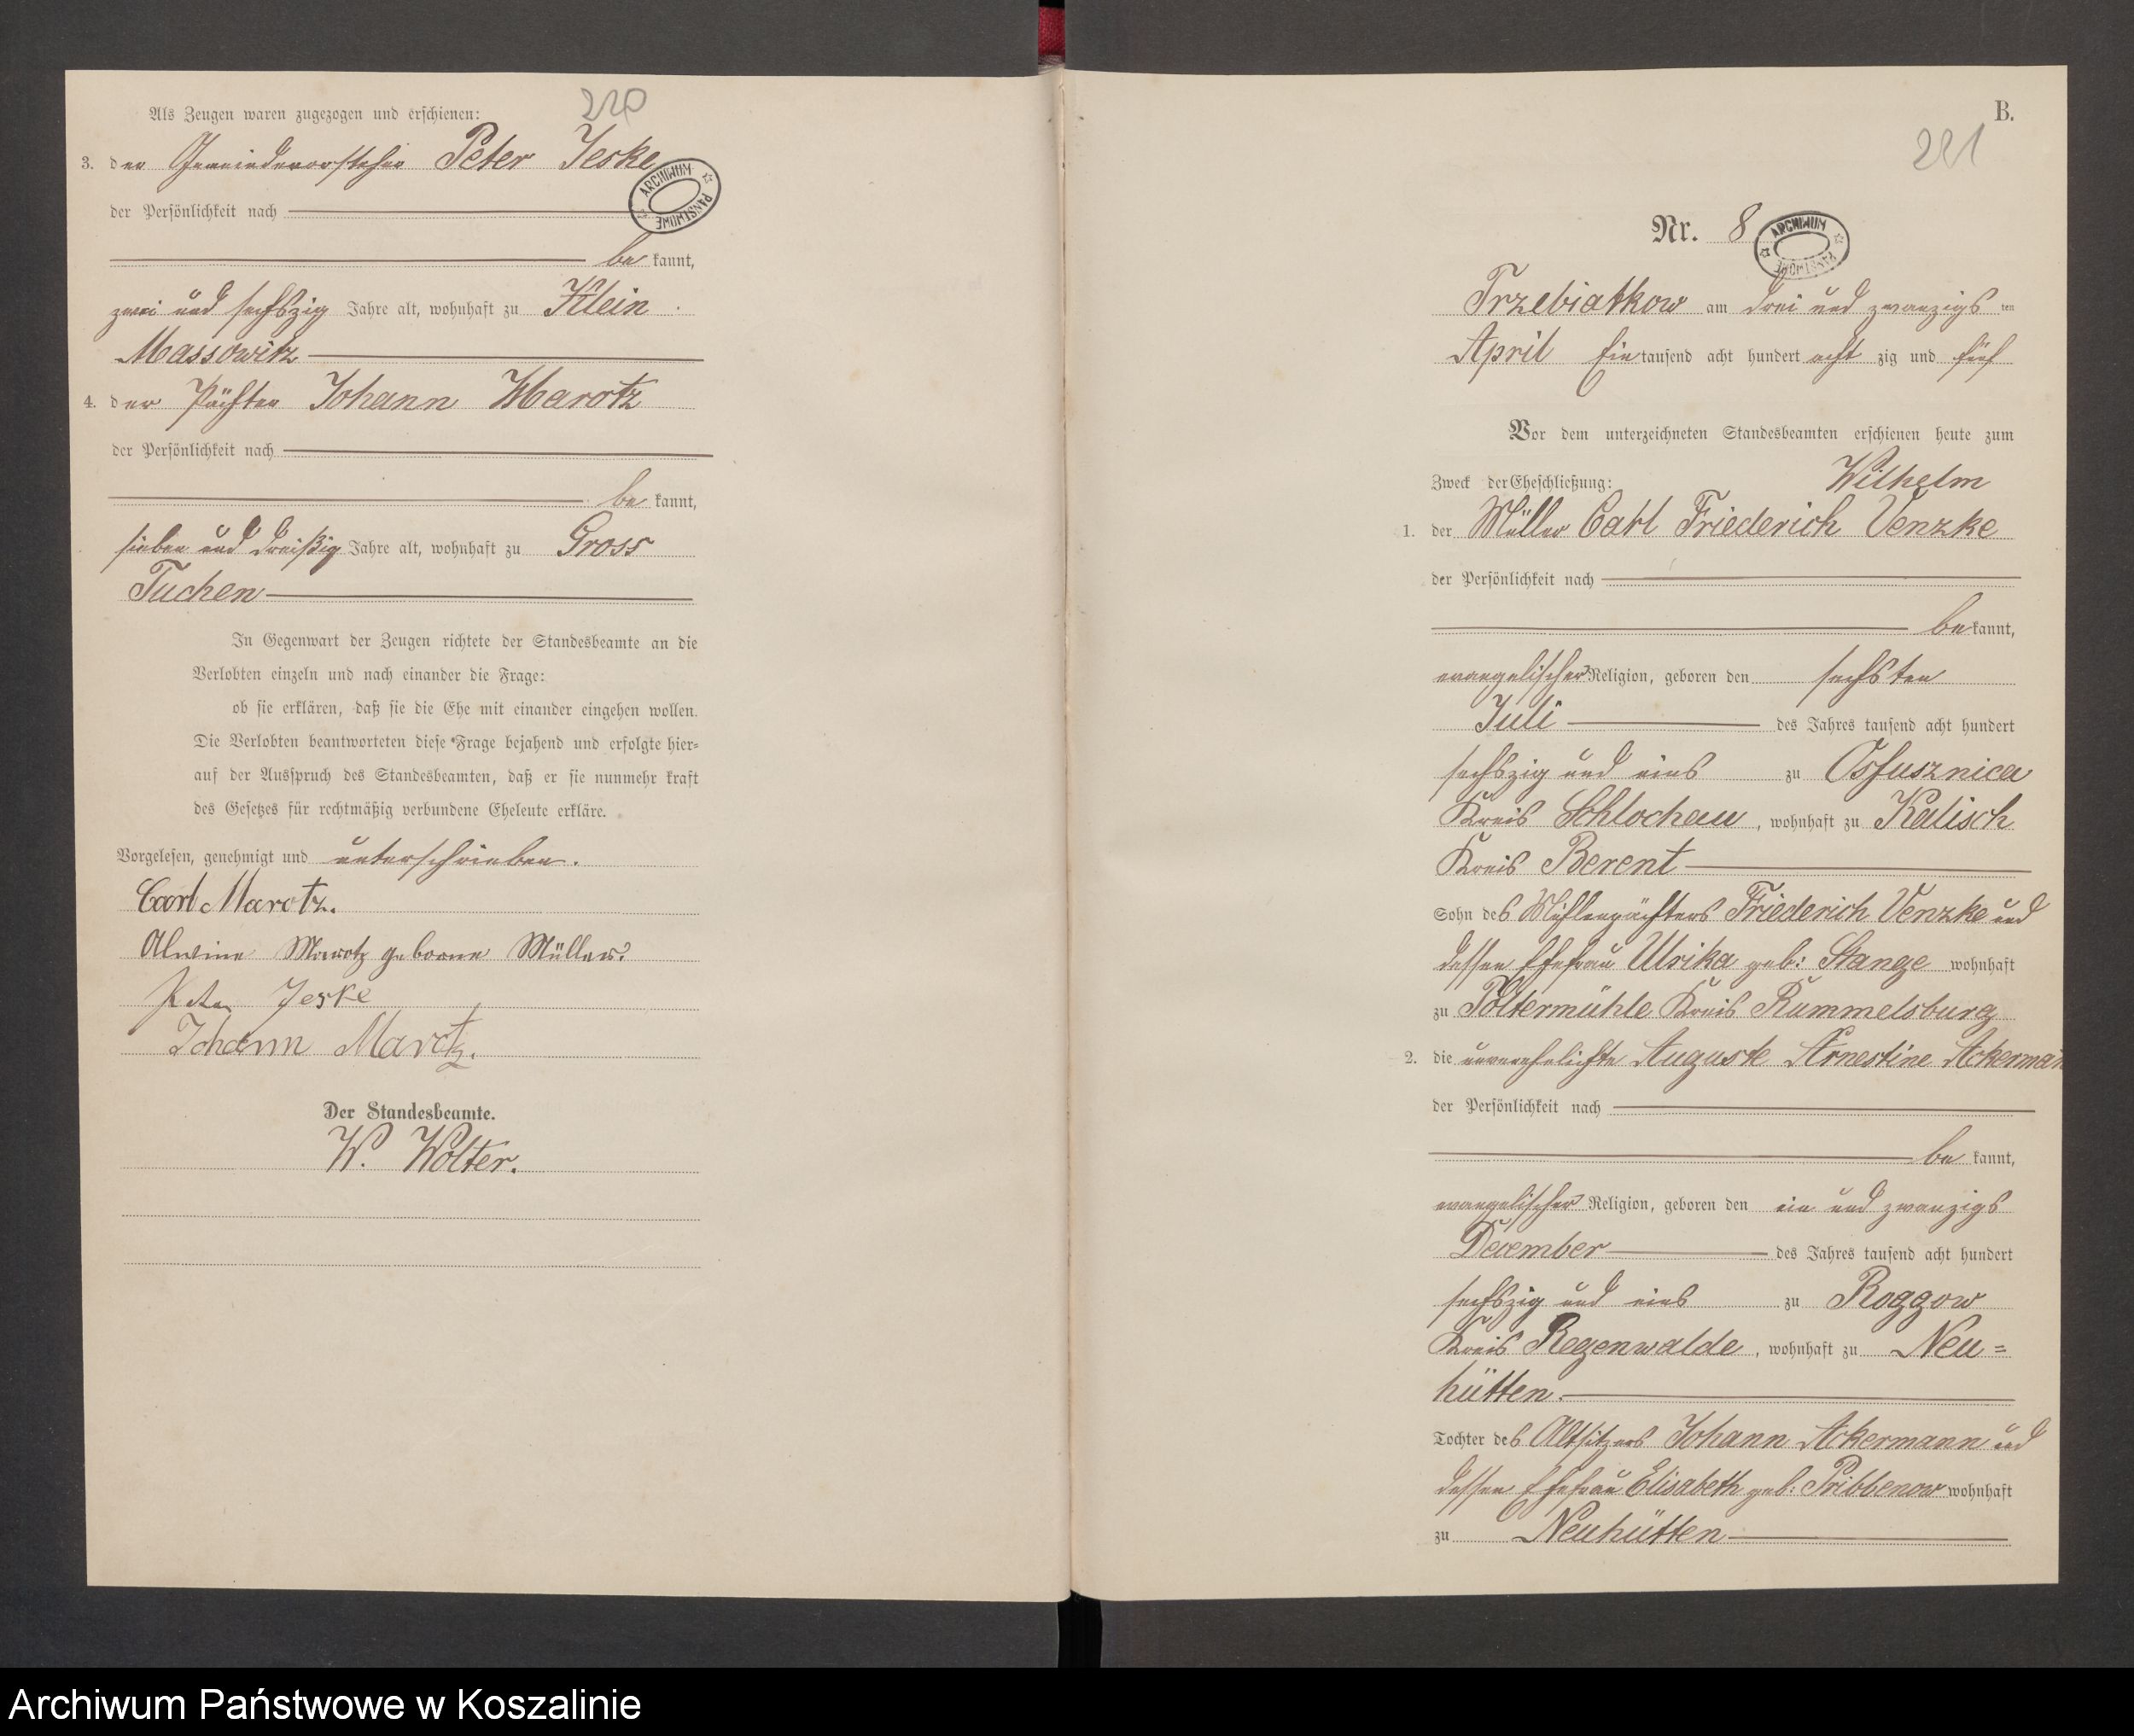 220
Als Zeugen waren zugezogen und erschienen:
3. der Gemeindevorsteher Peter Jeske
ARCHIWUM PAŃSTWOWE
der Persönlichkeit nach
be kannt,
zwei und sechszig Jahre alt, wohnhaft zu Klein
Massowitz
4. der Pächter Johann Marotz
der Persönlichkeit nach
be kannt,
sieben und dreißig Jahre alt, wohnhaft zu Gross
Tuchen
In Gegenwart der Zeugen richtete der Standesbeamte an die
Verlobten einzeln und nach einander die Frage:
ob sie erklären, daß sie die Ehe mit einander eingehen wollen.
Die Verlobten beantworteten diese Frage bejahend und erfolgte hier=
auf der Ausspruch des Standesbeamten, daß er sie nunmehr kraft
des Gesetzes für rechtmäßig verbundene Eheleute erkläre.
Vorgelesen, genehmigt und unterschrieben.
Carl Marotz.
Alwine Marotz geborne Müller.
Peter Jeske
Johann Marotz.
Der Standesbeamte.
W. Wolter.
B.
221
Nr. 8
ARCHIWUM PAŃSTWOWE
Trzebiatkow am drei und zwanzigs ten
April Ein tausend acht hundert acht zig und fünf
Vor dem unterzeichneten Standesbeamten erschienen heute zum
Zweck der Eheschließung: Wilhelm
1. der Müller Carl Friederich Venzke
der Persönlichkeit nach
be kannt,
evangelischer Religion, geboren den sechsten
Juli des Jahres tausend acht hundert
sechszig und eins zu Ossusznica
Kreis Schlochau, wohnhaft zu Kalisch
Kreis Berent
Sohn des Mühlenpächters Friederich Venzke und
dessen Ehefrau Ulrika geb: Stange wohnhaft
zu Poltermühle Kreis Rummelsburg
2. die unverehelichte Auguste Ernestine Ackermann
der Persönlichkeit nach
be kannt,
evangelischer Religion, geboren den ein und zwanzigs
December des Jahres tausend acht hundert
sechszig und eins zu Roggow
Kreis Regenwalde, wohnhaft zu Neu=
hütten.
Tochter des Altsitzers Johann Ackermann und
dessen Ehefrau Elisabeth geb: Pribbenow wohnhaft
zu Neuhütten
Archiwum Państwowe w Koszalinie